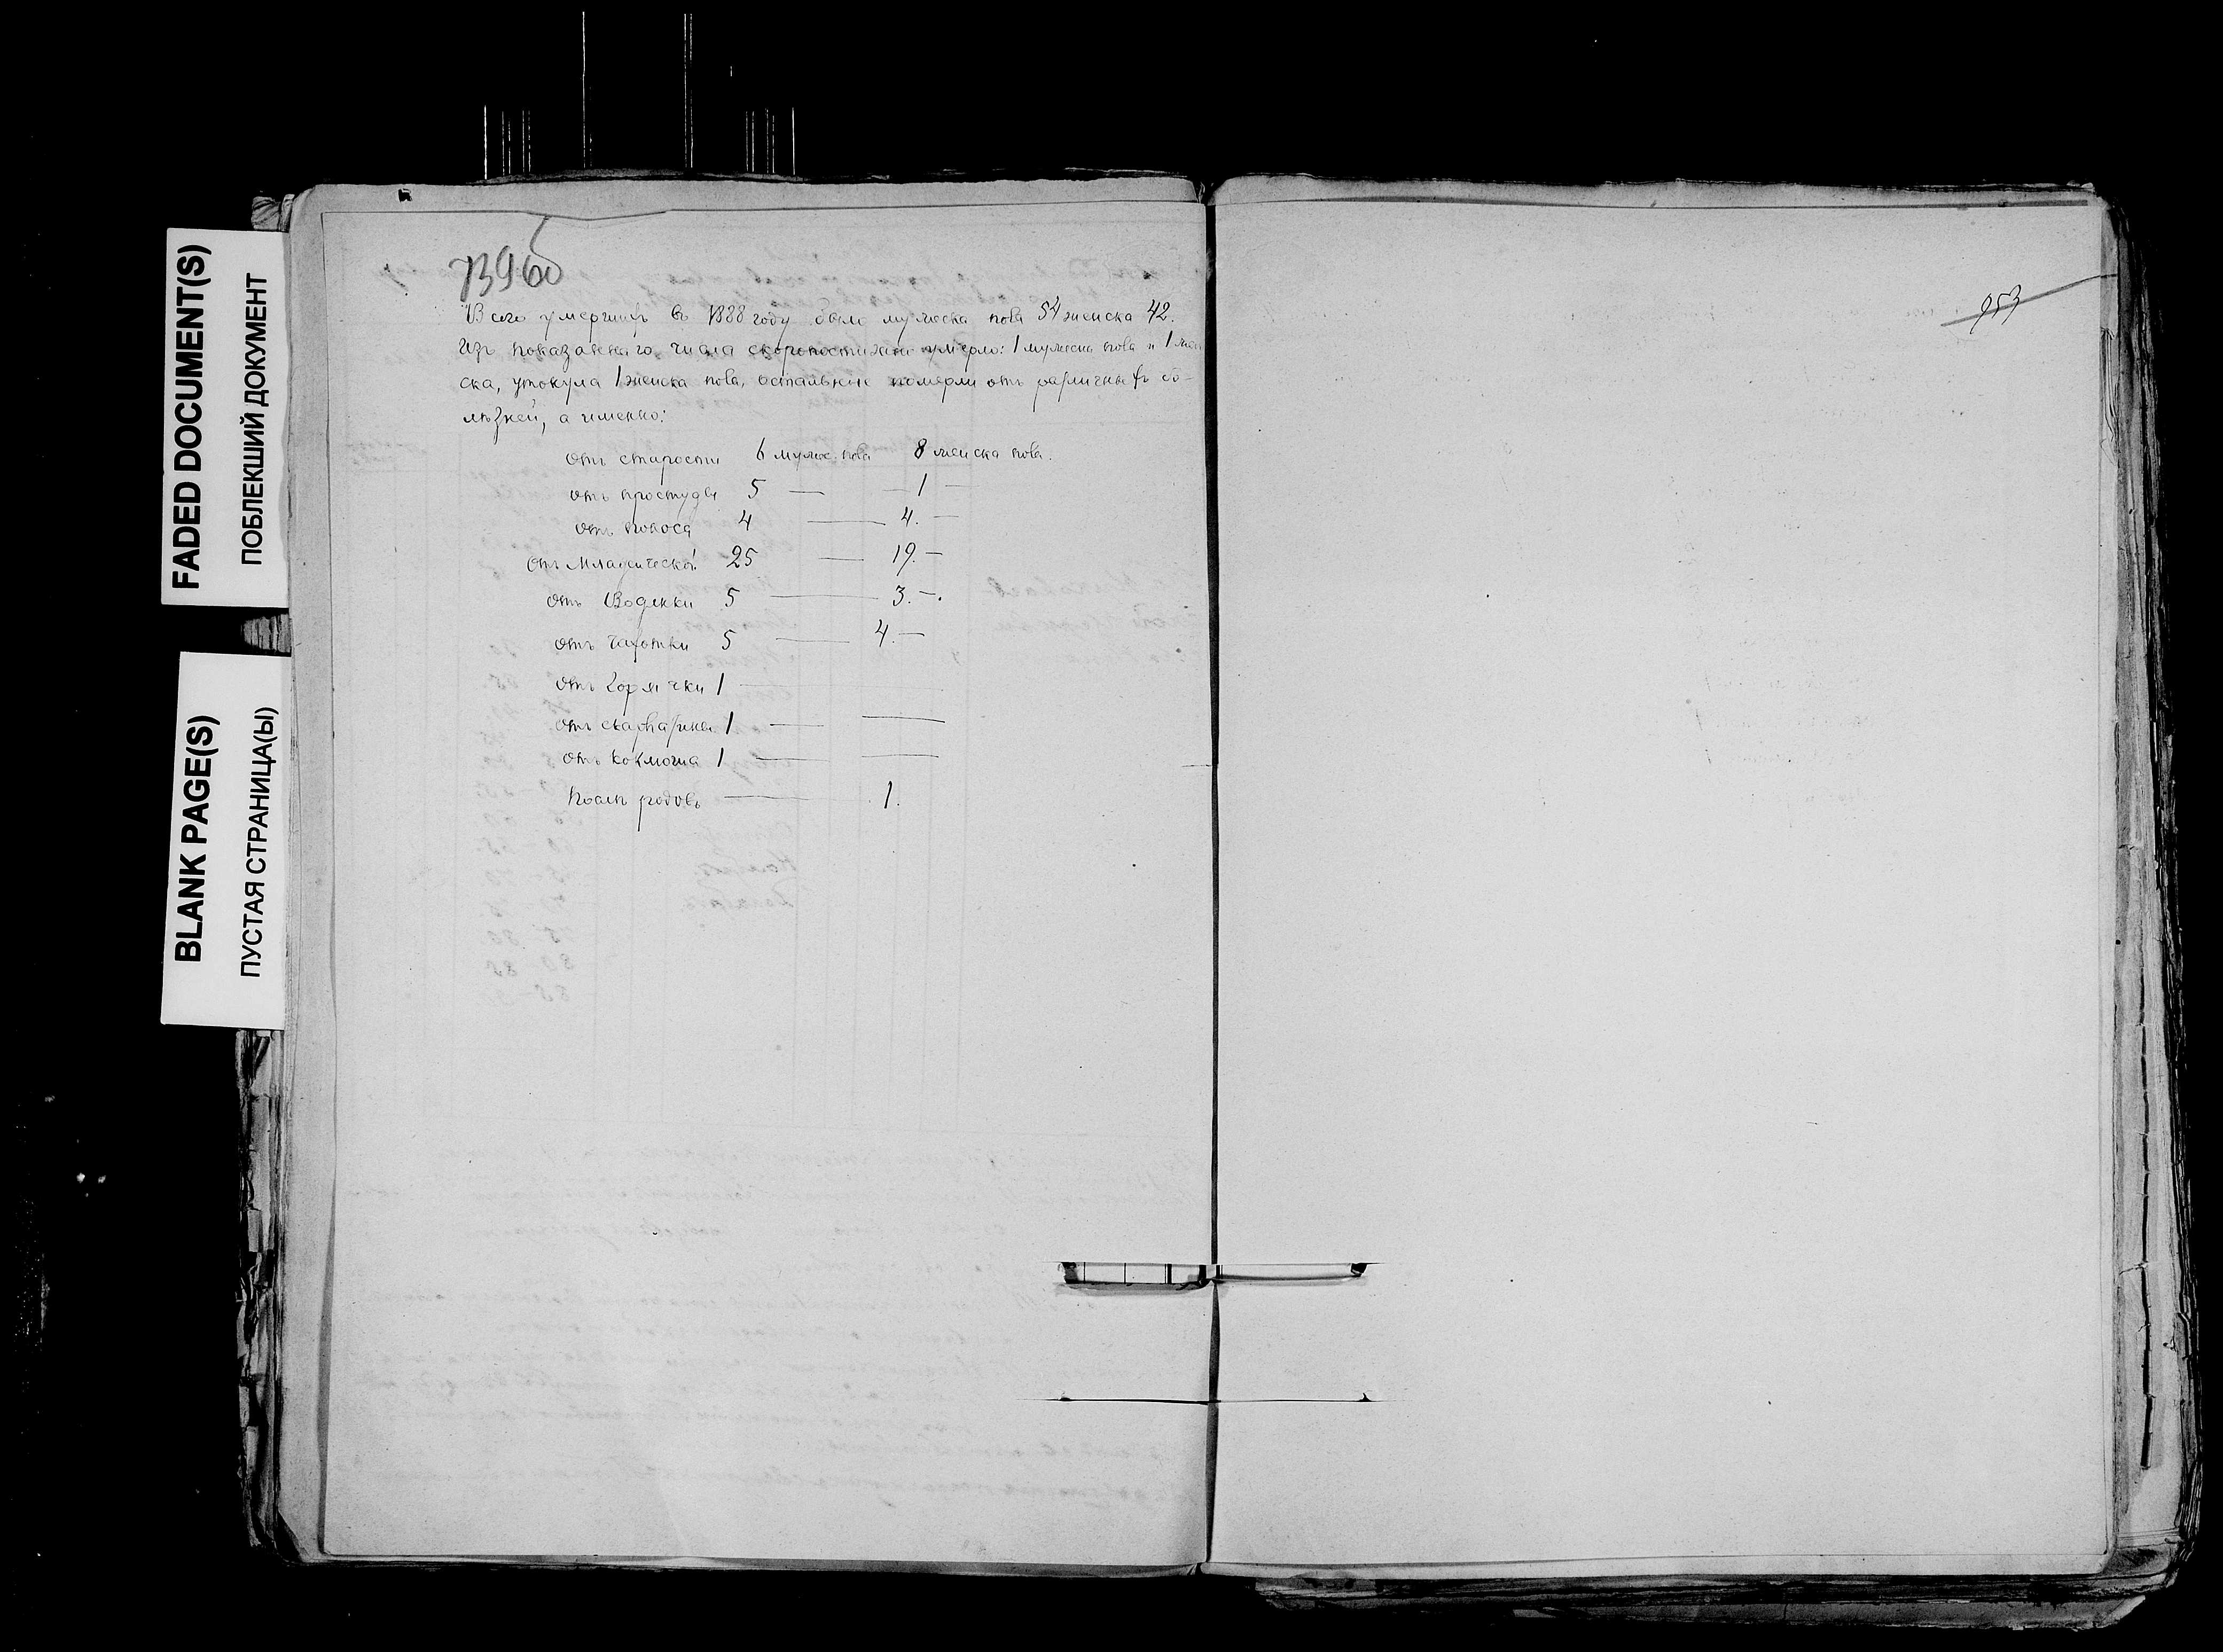 FADED DOCUMENT(S)
ПОБЛЕКШИЙ ДОКУМЕНТ
BLANK PAGE(S)
ПУСТАЯ СТРАНИЦА(Ы)
Всего умершихъ въ 1888 году было мужеска пола 54 женска 42.
Изъ показаннаго числа скоропостижно умерло: 1 мужеска пола и 1 жен
ска, утонула 1 женска пола, остальные померли отъ различныхъ бо-
лѣзней, а именно:
отъ старости 6 мужес. пола 8 женска пола.
отъ простуды 5 — — 1 —
отъ поноса 4 — 4. —
отъ младенческой 25 — 19. —
отъ Водянки 5 — 3. —.
отъ чахотки 5 — 4. —
отъ горячки 1 —
отъ скарлатины 1 — —
отъ коклюша 1 — —
Послѣ родовъ — 1.
953